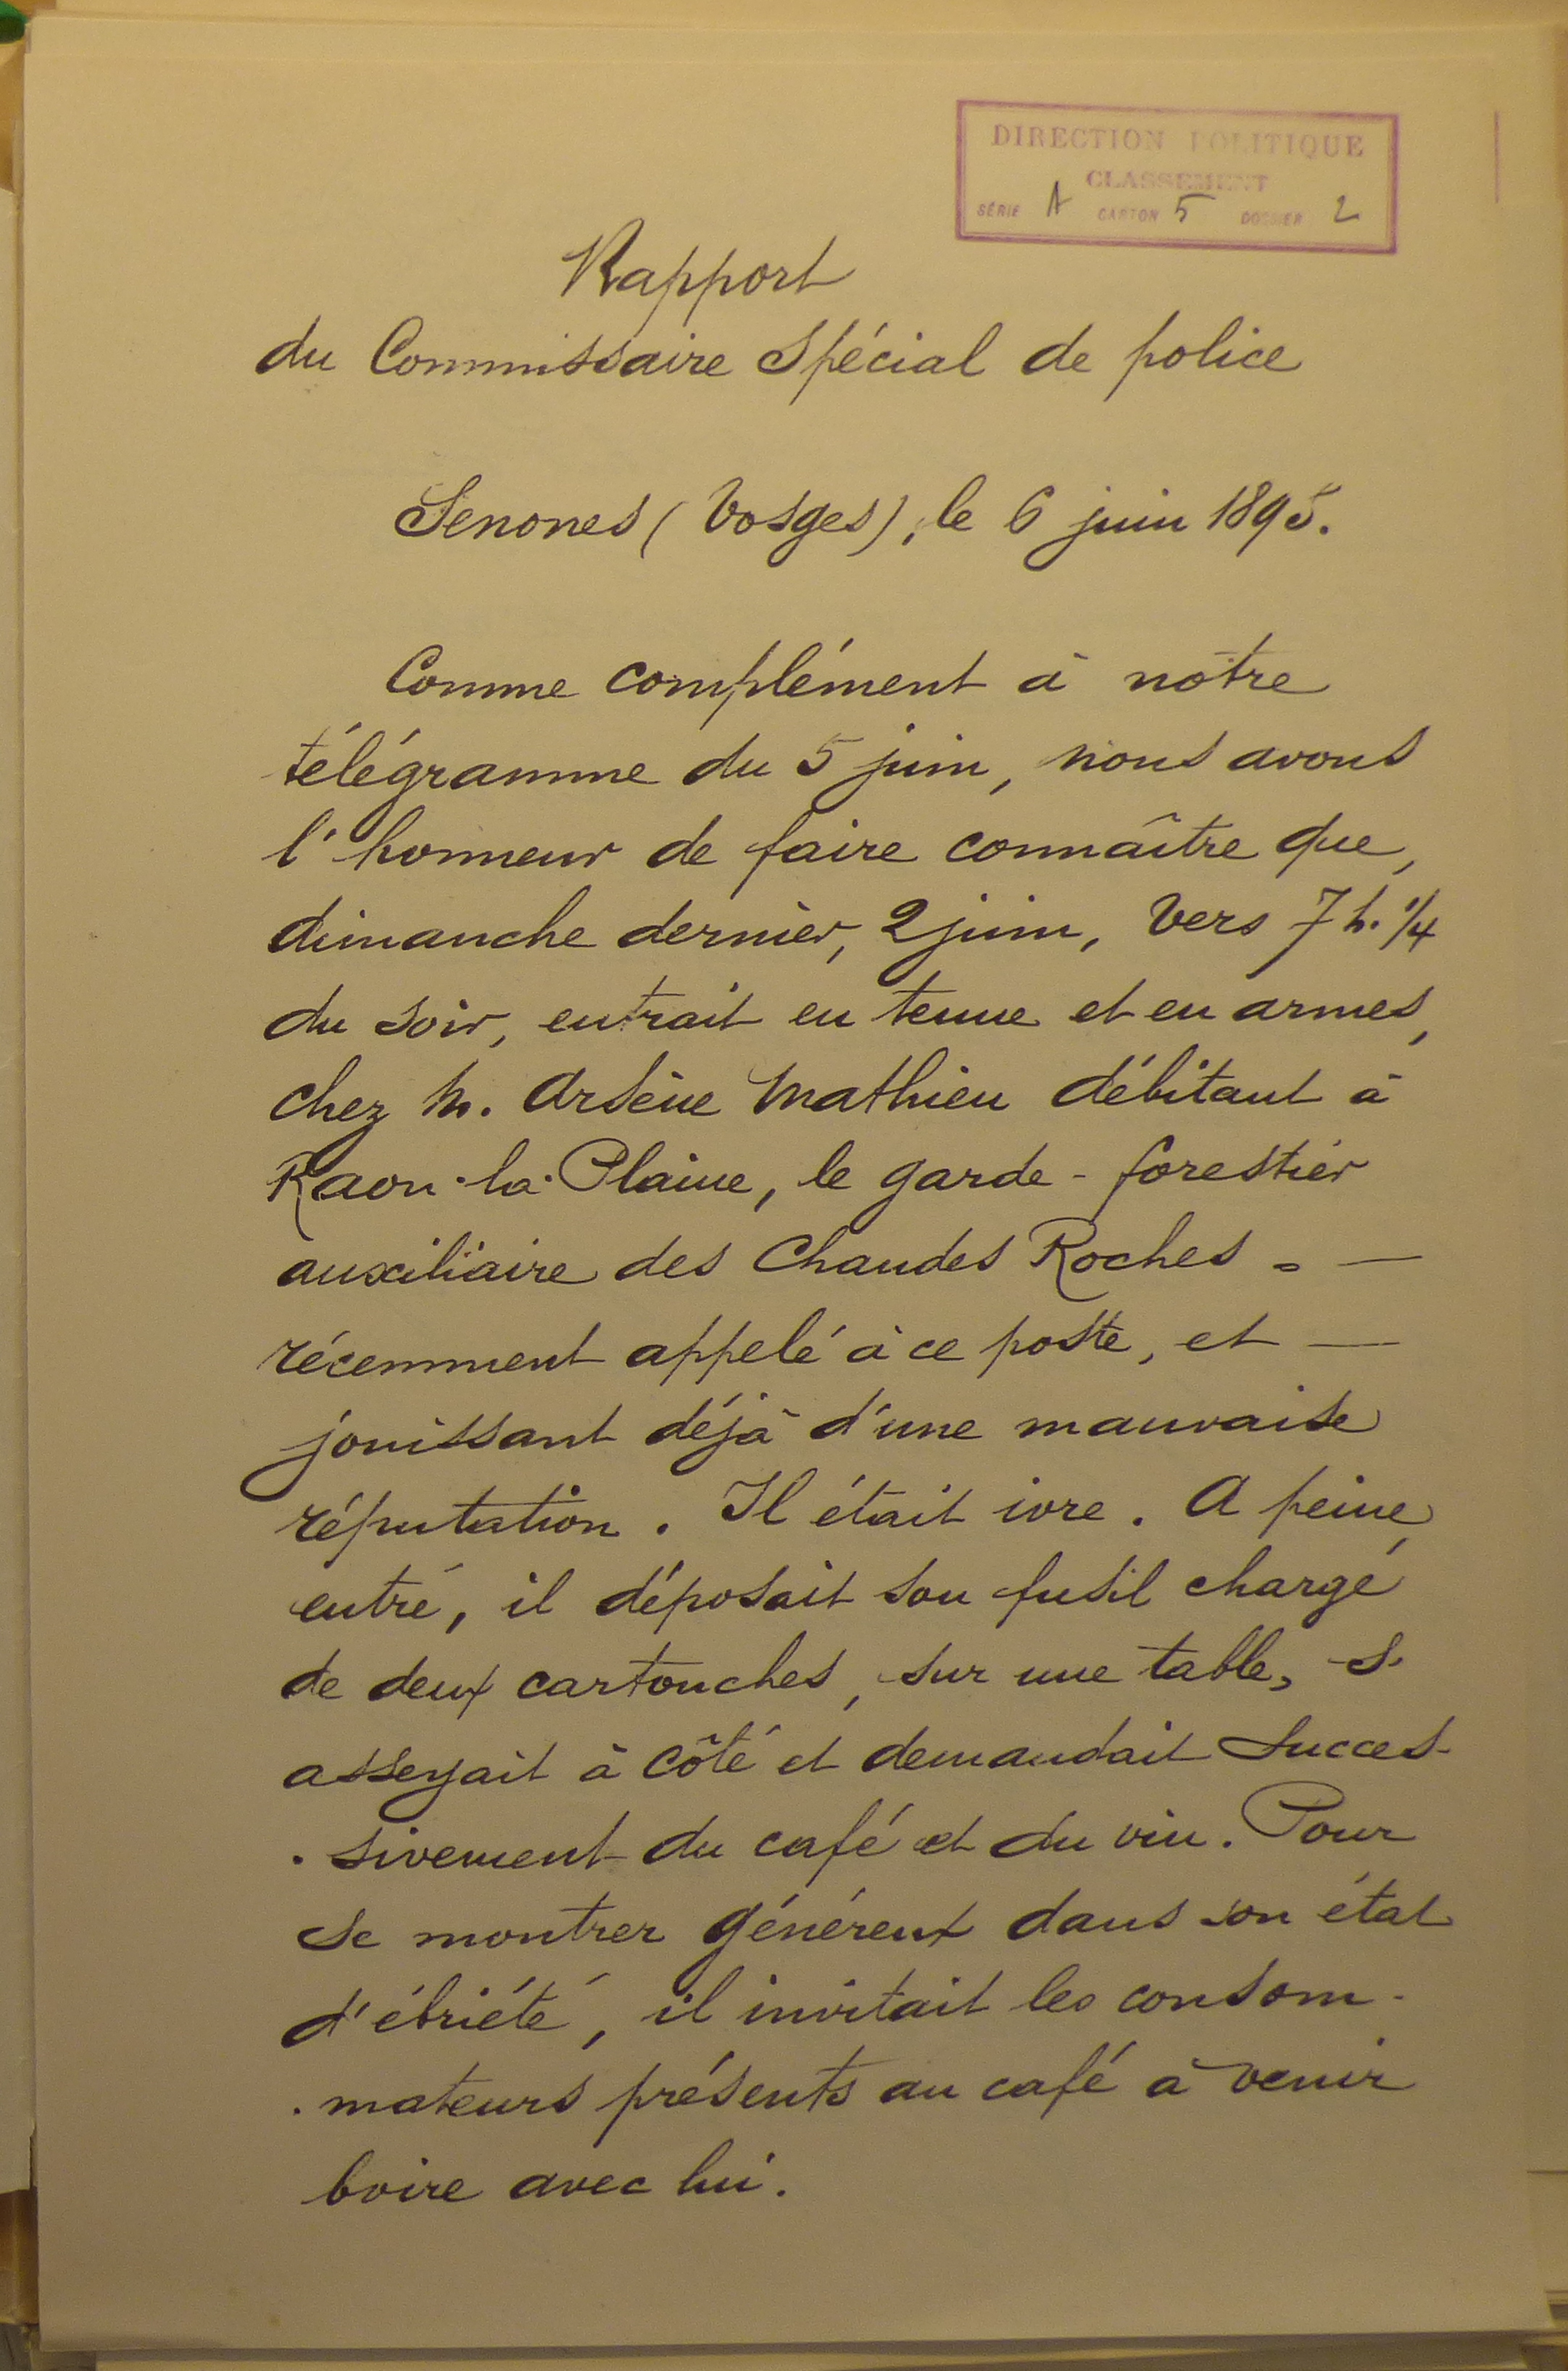 DIRECTION POLITIQUE
CLASSEMENT
SÉRIE A CARTON 5 DOSSIER 2
Rapport
du Commissaire Spécial de police
Senones (Vosges), le 6 juin 1895.
Comme complément à nôtre
télégramme du 5 juin, nous avons
l'honneur de faire connaître que,
dimanche dernier, 2 juin, vers 7 h. 1/4
du soir, entrait en tenue et en armes,
chez M. Arsène Mathieu débitant à
Raon-la-Plaine, le garde-forestier
auxiliaire des Chaudes Roches - —
récemment appelé à ce poste, et —
jouissant déjà d'une mauvaise
réputation. Il était ivre. A peine
entré, il déposait son fusil chargé
de deux cartouches, sur une table, s'
asseyait à côté et demandait succes-
-sivement du café et du vin. Pour
se montrer généreux dans son état
d'ébriété, il invitait les consom-
-mateurs présents au café à venir
boire avec lui.